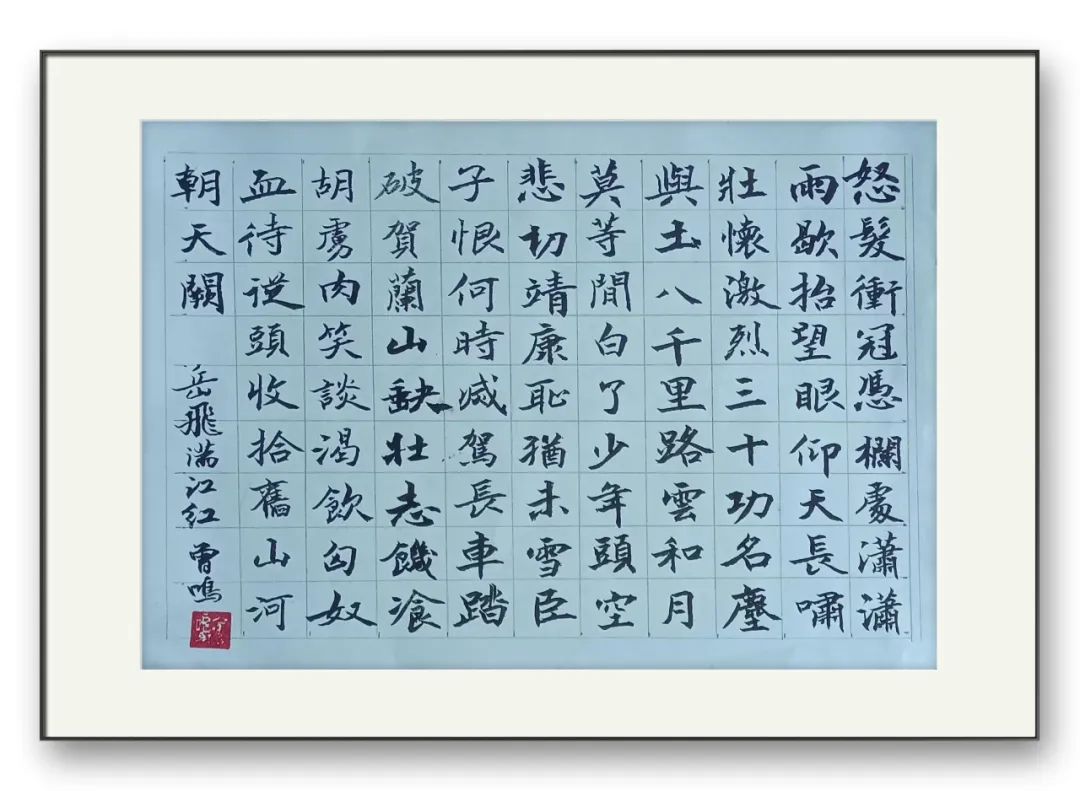 怒髮衝冠憑欄處瀟瀟
雨歇抬望眼仰天長嘯
壯懷激烈三十功名塵
與土八千里路雲和月
莫等間白了少年頭空
悲切靖康恥猶未雪臣
子恨何時滅駕長車踏
破賀蘭山缺壯志饑湌
胡虜肉笑談渴飲匈奴
血待從頭收拾舊山河
朝天闕
岳飛滿江紅 曾鳴